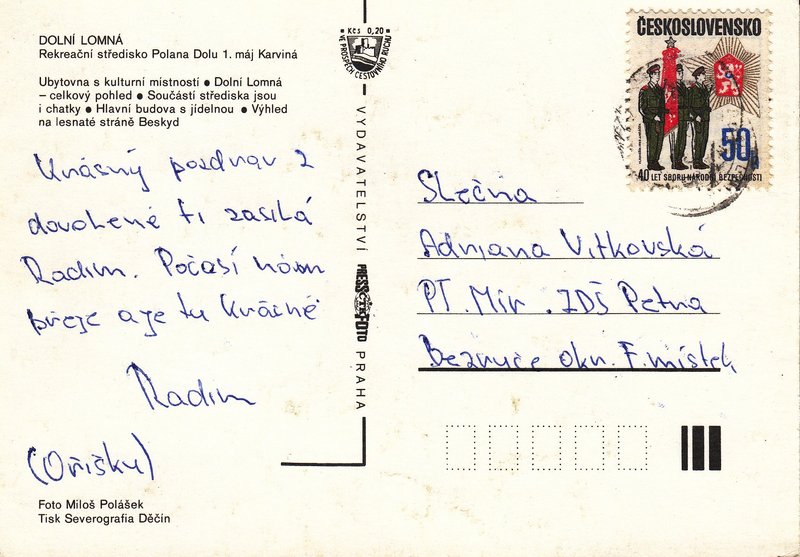 DOLNÍ LOMNÁ
Rekreační středisko Polana Dolu 1. máj Karviná
Ubytovna s kulturní místností ● Dolní Lomná
– celkový pohled ● Součástí střediska jsou
i chatky ● Hlavní budova s jídelnou ● Výhled
na lesnaté stráně Beskyd
Krásný pozdrav z
dovolené ti zasílá
Radim. Počasí nám
přeje a je tu krásně
Radim
(Oříšku)
Foto Miloš Polášek
Tisk Severografia Děčín
Kčs 0,20
VE PROSPĚCH CESTOVNÍHO RUCHU
VYDAVATELSTVÍ
PRESSFOTO
PRAHA
ČESKOSLOVENSKO
50
40 LET SBORU NÁRODNÍ BEZPEČNOSTI
Slečna
Adriana Vitkovská
PT. Mír . ZDŠ Petra
Bezruče okr. F.místek